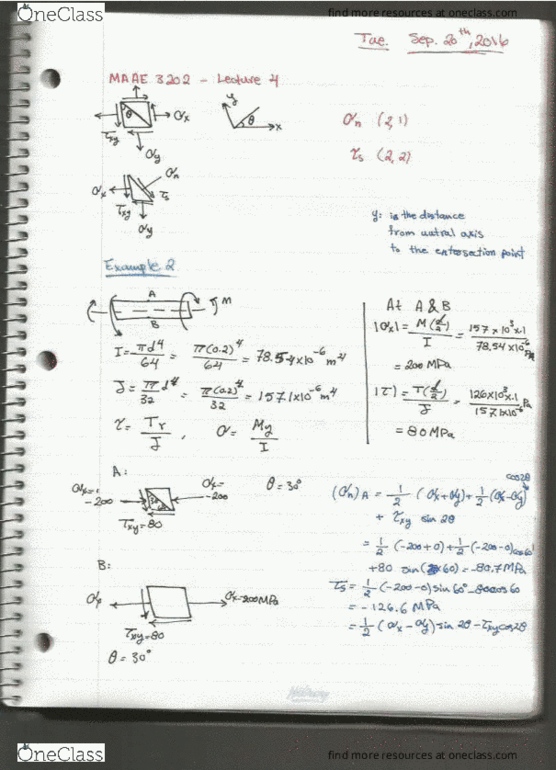 OneClass
find more resources at oneclass.com
Tue. Sep. 20th, 2016
MAAE 3202 - Lecture 4
θ
σx
τxy
σy
y
θ
x
σn (2,1)
τs (2,2)
σn
σx
τs
τxy
σy
y: is the distance
from
axis
to the entersection point
Example 2
A
B
M
I = πd⁴/64 = π(0.2)⁴/64 = 78.54x10⁻⁶ m⁴
J = π/32 d⁴ = π(0.2)⁴/32 = 157.1x10⁻⁶ m⁴
τ = Tr/J , σ = My/I
At A & B
|σx| = M(d/2)/I = 157 x 10³x.1/78.54x10⁻⁶
= 200 MPa
|τ| = T(d/2)/J = 126x10³x.1/157.1x10⁻⁶ Pa
= 80 MPa
A:
σx=
-200
σx=
-200
θ = 30°
τxy = 80
(σn)A = 1/2 (σx+σy) + 1/2 (σx-σy) cos2θ
+ τxy sin 2θ
= 1/2 (-200+0) + 1/2 (-200-0)cos60°
+80 sin(60) = -80.7 MPa
τs = 1/2 (-200-0) sin 60° - 80cos60
= -126.6 MPa
= 1/2 (σx - σy) sin 2θ - τxy cos2θ
B:
σx
σx=200MPa
τxy=80
θ = 30°
OneClass
find more resources at oneclass.com